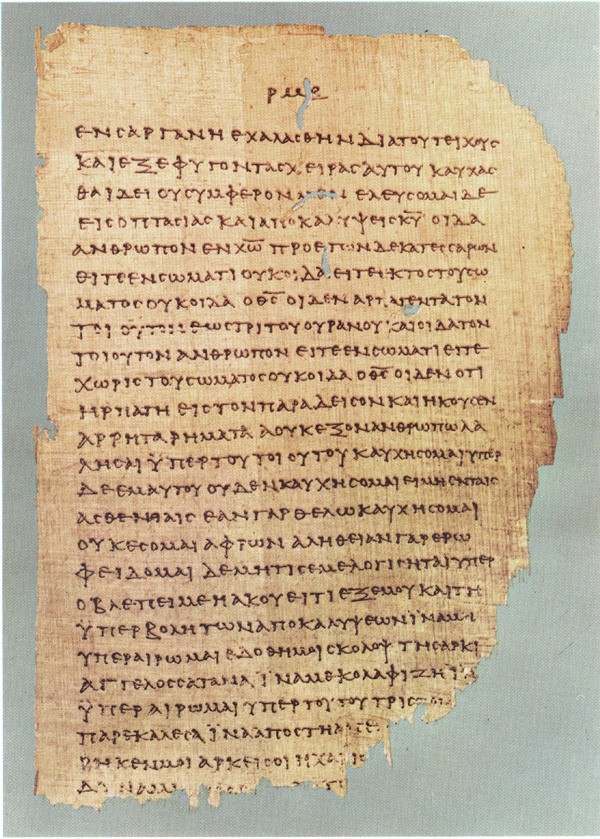 ΡΜΕ
ΕΝϹΑΡΓΑΝΗ ΕΧΑΛΑϹΘΗΝ ΔΙΑΤΟΥΤΕΙΧΟΥϹ
ΚΑΙΕΞΕΦΥΓΟΝΤΑϹΧΕΙΡΑϹΑΥΤΟΥ ΚΑΥΧΑϹ
ΘΑΙΔΕΙ ΟΥϹΥΜΦΕΡΟΝ ΜΕΝ ΕΛΕΥϹΟΜΑΙΔΕ
ΕΙϹΟΠΤΑϹΙΑϹ ΚΑΙΑΠΟΚΑΛΥΨΕΙϹΚ̅Υ̅ ΟΙΔΑ
ΑΝΘΡΩΠΟΝ ΕΝΧ̅Ω̅ ΠΡΟΕΤΩΝΔΕΚΑΤΕϹϹΑΡΩΝ
ΕΙΤΕΕΝϹΩΜΑΤΙ ΟΥΚΟΙΔΑ ΕΙΤΕΕΚΤΟϹΤΟΥϹΩ
ΜΑΤΟϹΟΥΚΟΙΔΑ ΟΘ̅Ϲ̅ ΟΙΔΕΝ ΑΡΠΑΓΕΝΤΑΤΟΝ
ΤΟΙΟΥΤΟΝ ΕΩϹΤΡΙΤΟΥΟΥΡΑΝΟΥ ΚΑΙΟΙΔΑΤΟΝ
ΤΟΙΟΥΤΟΝ ΑΝΘΡΩΠΟΝ ΕΙΤΕΕΝϹΩΜΑΤΙ ΕΙΤΕ
ΧΩΡΙϹΤΟΥϹΩΜΑΤΟϹΟΥΚΟΙΔΑ ΟΘ̅Ϲ̅ ΟΙΔΕΝ ΟΤΙ
ΗΡΠΑΓΗ ΕΙϹΤΟΝΠΑΡΑΔΕΙϹΟΝ ΚΑΙΗΚΟΥϹΕΝ
ΑΡΡΗΤΑΡΗΜΑΤΑ ΑΟΥΚΕΞΟΝΑΝΘΡΩΠΩΛΑ
ΛΗϹΑΙ ΫΠΕΡΤΟΥΤΟΙΟΥΤΟΥ ΚΑΥΧΗϹΟΜΑΙΥΠΕΡ
ΔΕΕΜΑΥΤΟΥ ΟΥΔΕΝΚΑΥΧΗϹΟΜΑΙΕΙΜΗΕΝΤΑΙϹ
ΑϹΘΕΝΙΑΙϹ ΕΑΝΓΑΡΘΕΛΩΚΑΥΧΗϹΟΜΑΙ
ΟΥΚΕϹΟΜΑΙ ΑΦΡΩΝ ΑΛΗΘΕΙΑΝΓΑΡΕΡΩ
ΦΕΙΔΟΜΑΙ ΔΕΜΗΤΙϹΕΜΕΛΟΓΙϹΗΤΑΙΥΠΕΡ
ΟΒΛΕΠΕΙΜΕΗΑΚΟΥΕΙΤΙΕΞΕΜΟΥΚΑΙΤΗ
ΫΠΕΡΒΟΛΗΤΩΝΑΠΟΚΑΛΥΨΕΩΝΪΝΑΜΗ
ΥΠΕΡΑΙΡΩΜΑΙΕΔΟΘΗΜΟΙϹΚΟΛΟΨ ΤΗϹΑΡΚΙ
ΑΓΓΕΛΟϹϹΑΤΑΝΑ ΪΝΑΜΕΚΟΛΑΦΙΖΗ ΪΝΑ
ΫΠΕΡΑΙΡΩΜΑΙ ΥΠΕΡΤΟΥΤΟΥΤΡΙϹ
ΠΑΡΕΚΑΛΕϹΑ ΪΝΑΑΠΟϹΤΗ
ΡΗΚΕΝΜΟΙ ΑΡΚΕΙϹΟΙΗΧΑΡΙϹ
ΔΥΝΑΜΙ